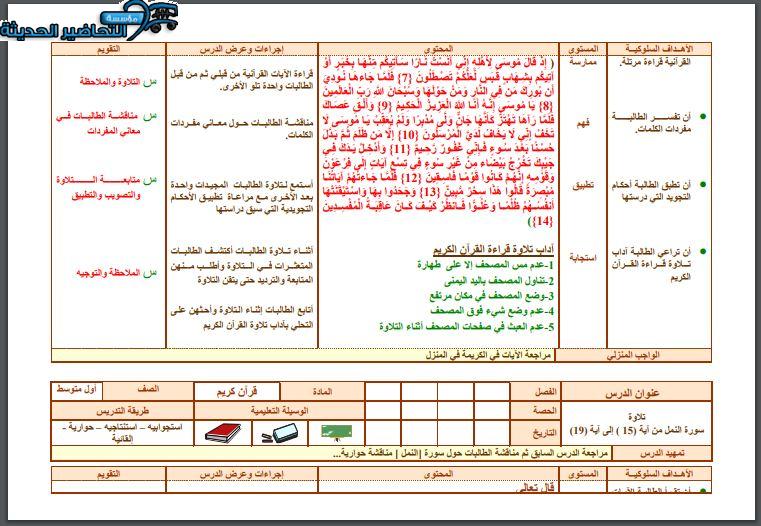 مؤسسة
التحاضير الحديثة
الأهـداف السلوكيــة
المستوى
المحتوى
إجراءات وعرض الدرس
التقويم
القرآنية قراءة مرتلة.
ممارسة
( إِذْ قَالَ مُوسَى لِأَهْلِهِ إِنِّي آنَسْتُ نَارًا سَآتِيكُم مِّنْهَا بِخَبَرٍ أَوْ
آتِيكُم بِشِهَابٍ قَبَسٍ لَّعَلَّكُمْ تَصْطَلُونَ {7} فَلَمَّا جَاءهَا نُودِيَ
أَن بُورِكَ مَن فِي النَّارِ وَمَنْ حَوْلَهَا وَسُبْحَانَ اللَّهِ رَبِّ الْعَالَمِينَ
{8} يَا مُوسَى إِنَّهُ أَنَا اللَّهُ الْعَزِيزُ الْحَكِيمُ {9} وَأَلْقِ عَصَاكَ
فَلَمَّا رَآهَا تَهْتَزُّ كَأَنَّهَا جَانٌّ وَلَّى مُدْبِرًا وَلَمْ يُعَقِّبْ يَا مُوسَى لَا
تَخَفْ إِنِّي لَا يَخَافُ لَدَيَّ الْمُرْسَلُونَ {10} إِلَّا مَن ظَلَمَ ثُمَّ بَدَّلَ
حُسْنًا بَعْدَ سُوءٍ فَإِنِّي غَفُورٌ رَّحِيمٌ {11} وَأَدْخِلْ يَدَكَ فِي
جَيْبِكَ تَخْرُجْ بَيْضَاء مِنْ غَيْرِ سُوءٍ فِي تِسْعِ آيَاتٍ إِلَى فِرْعَوْنَ
وَقَوْمِهِ إِنَّهُمْ كَانُوا قَوْمًا فَاسِقِينَ {12} فَلَمَّا جَاءتْهُمْ آيَاتُنَا
مُبْصِرَةً قَالُوا هَذَا سِحْرٌ مُّبِينٌ {13} وَجَحَدُوا بِهَا وَاسْتَيْقَنَتْهَا
أَنفُسُهُمْ ظُلْمًا وَعُلُوًّا فَانظُرْ كَيْفَ كَانَ عَاقِبَةُ الْمُفْسِدِينَ
{14})
قراءة الآيات القرآنية من قبلي ثم من قبل
الطالبات واحدة تلو الأخرى.
س التلاوة والملاحظة
أن تفســـر الطالبـــة
مفردات الكلمات.
فهم
مناقشة الطالبات حول معاني مفردات
الكلمات.
س مناقشـة الطالبـات فـي
معاني المفردات
أن تطبق الطالبة أحكام
التجويد التي درستها
تطبيق
أستمع لتلاوة الطالبات المجيدات واحدة
بعد الأخرى مع مراعاة تطبيق الأحكام
التجويدية التي سبق دراستها
س متابعـــة الـــتلاوة
والتصويب والتطبيق
أن تراعي الطالبة آداب
تـلاوة قـراءة القـرآن
الكريم
استجابة
آداب تلاوة قراءة القرآن الكريم
1-عدم مس المصحف إلا على طهارة
2-تناول المصحف باليد اليمنى
3-وضع المصحف في مكان مرتفع
4-عدم وضع شيء فوق المصحف
5-عدم العبث في صفحات المصحف أثناء التلاوة
أثناء تلاوة الطالبات أكتشف الطالبات
المتعثرات في التلاوة وأطلب منهن
المتابعة والترديد حتى يتقن التلاوة
أتابع الطالبات إثناء التلاوة وأحثهن على
التحلي بآداب تلاوة القرآن الكريم
س الملاحظة والتوجيه
الواجب المنزلي
مراجعة الآيات في الكريمة في المنزل
عنوان الدرس
الفصل
المادة
قرآن كريم
الصف
أول متوسط
تلاوة
سورة النمل من آية (15 ) إلى آية (19)
الحصة
الوسيلة التعليمية
طريقة التدريس
التاريخ
استجوابيه – استنتاجيه – حوارية -
إلقائية
تمهيد الدرس
مراجعة الدرس السابق ثم مناقشة الطالبات حول سورة |النمل | مناقشة حوارية...
الأهـداف السلوكيــة
المستوى
المحتوى
إجراءات وعرض الدرس
التقويم
قال تعالى